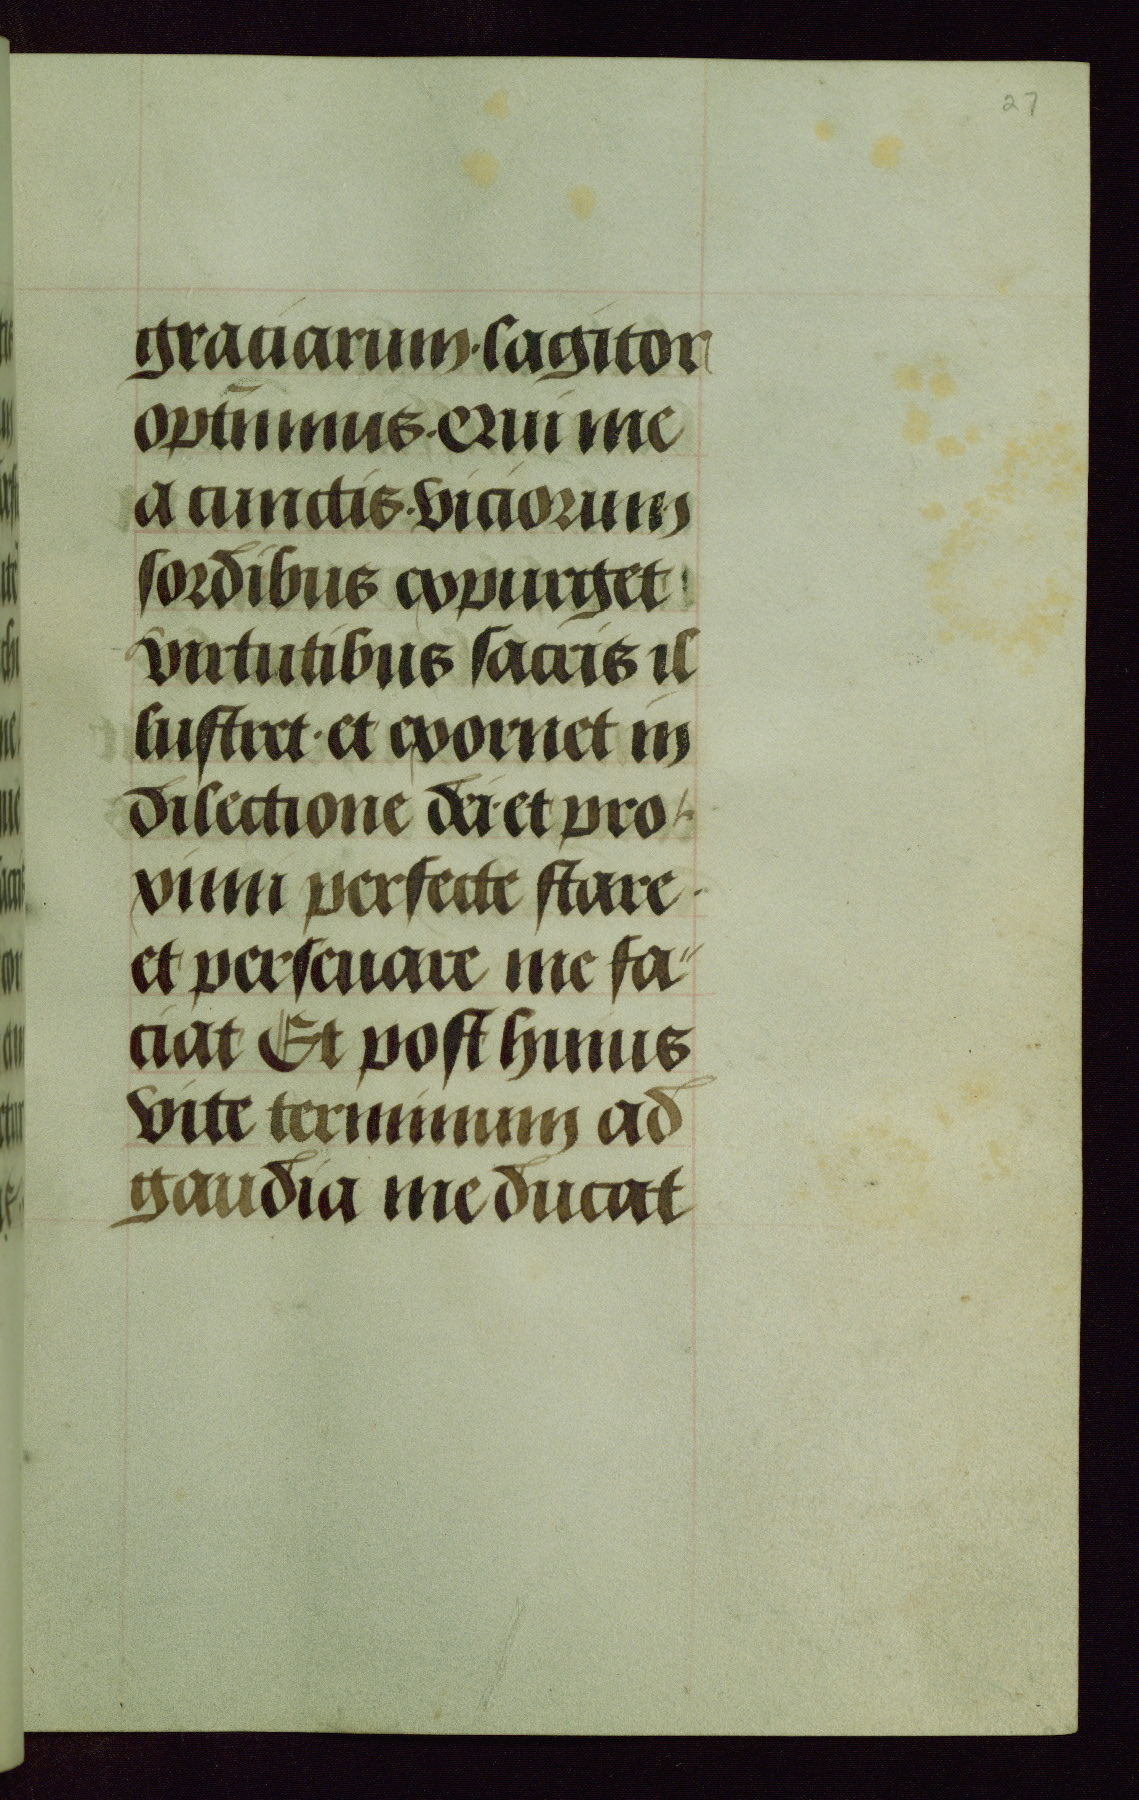 27
graciarum·lagitor
optīmus·Qui me
a cunctis·viciorum
sordibus expurget
virtutibus sacris il
lustret·et exornet in
dilectione dei·et pro
ximi perfecte stare
et perseuare me fa
ciat Et post huius
vite terminum ad
gaudia me ducat